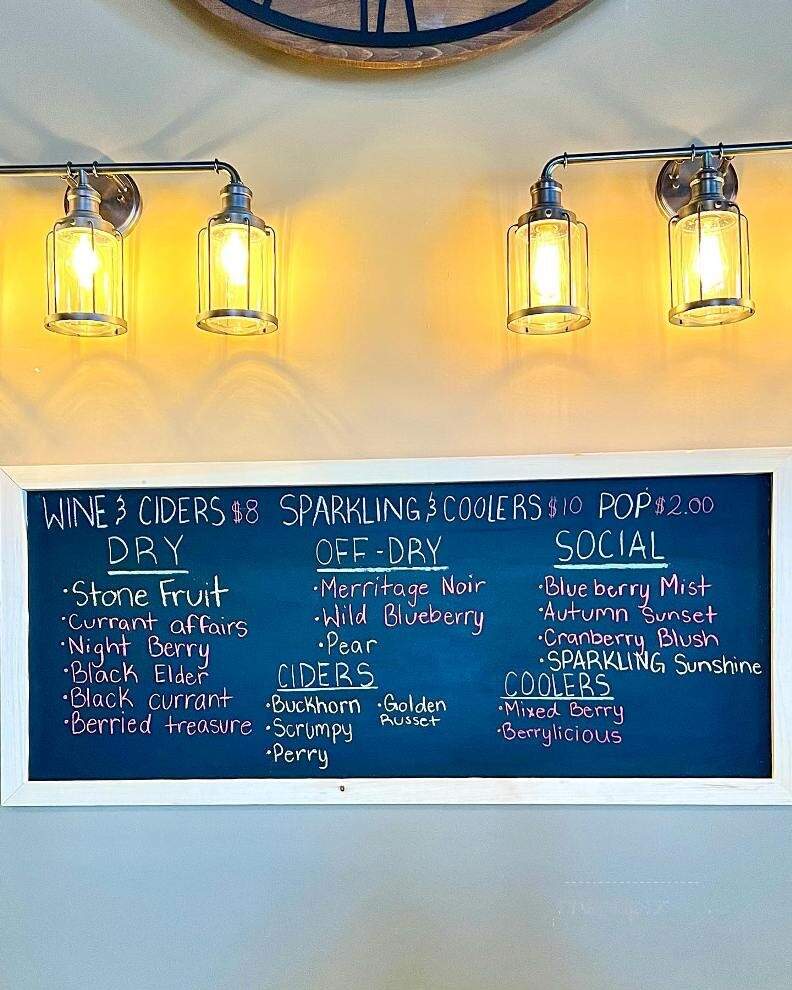 WINE & CIDERS $8 SPARKLING & COOLERS $10 POP $2.00
DRY
• Stone Fruit
• Currant affairs
• Night Berry
• Black Elder
• Black currant
• Berried treasure
OFF-DRY
• Merritage Noir
• Wild Blueberry
• Pear
CIDERS
• Buckhorn
• Scrumpy
• Perry
• Golden
Russet
SOCIAL
• Blueberry Mist
• Autumn Sunset
• Cranberry Blush
• SPARKLING Sunshine
COOLERS
• Mixed Berry
• Berrylicious